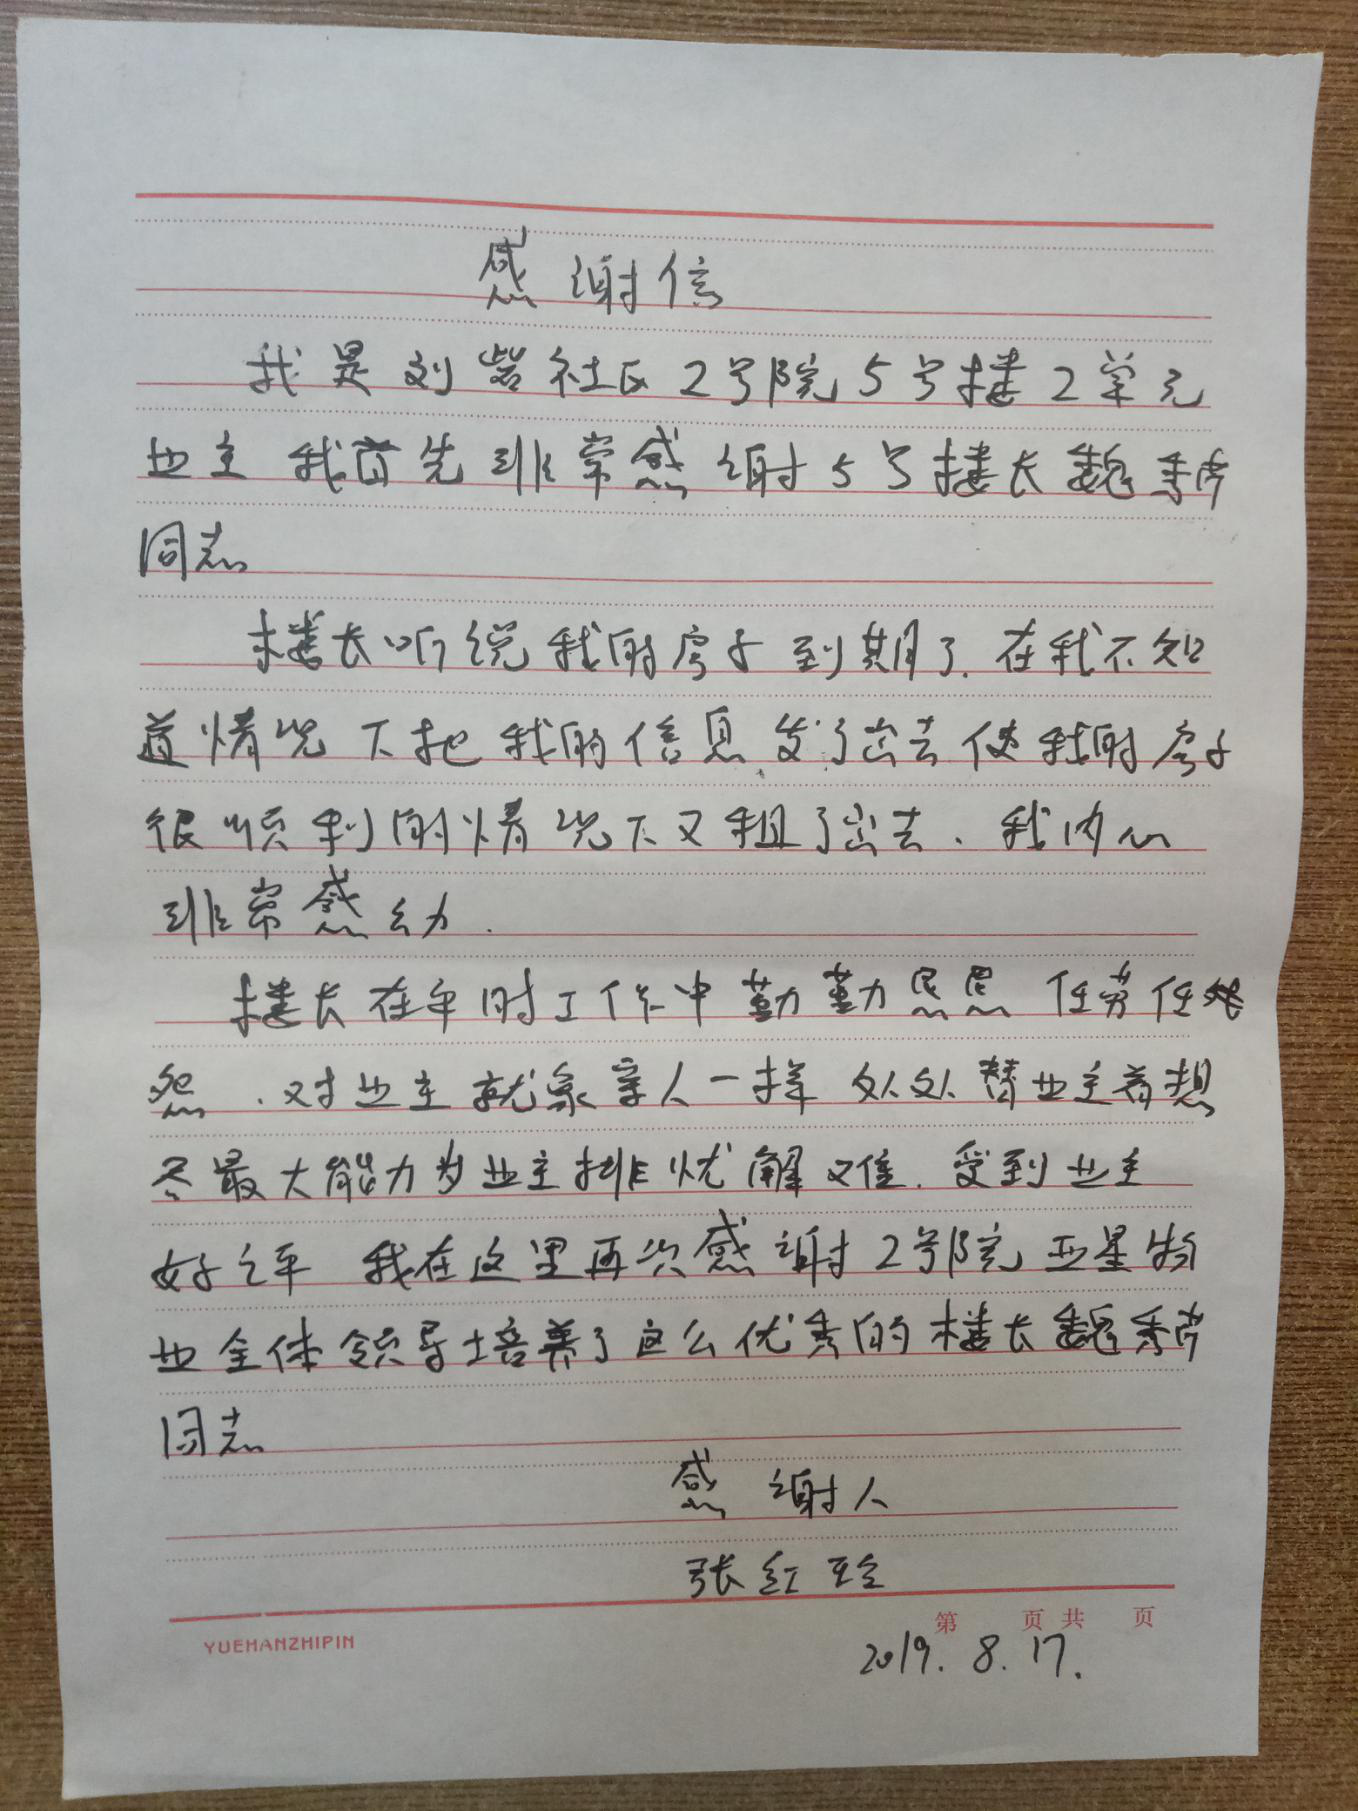 感谢信
我是刘砦社区2号院5号楼2单元
业主 我首先非常感谢5号楼长魏秀芹
同志
楼长听说我的房子到期了.在我不知
道情况下把我的信息发了出去使我的房子
很顺利的情况下又租了出去、我内心
非常感动.
楼长在平时工作中勤勤恳恳 任劳任
怨、对业主就象亲人一样 处处替业主着想
尽最大能力为业主排忧解难.受到业主
好评 我在这里再次感谢2号院亚星物
业全体领导培养了这么优秀的楼长魏秀芹
同志
感谢人
张红玲
第 页共 页
YUEHANZHIPIN
2019.8.17.